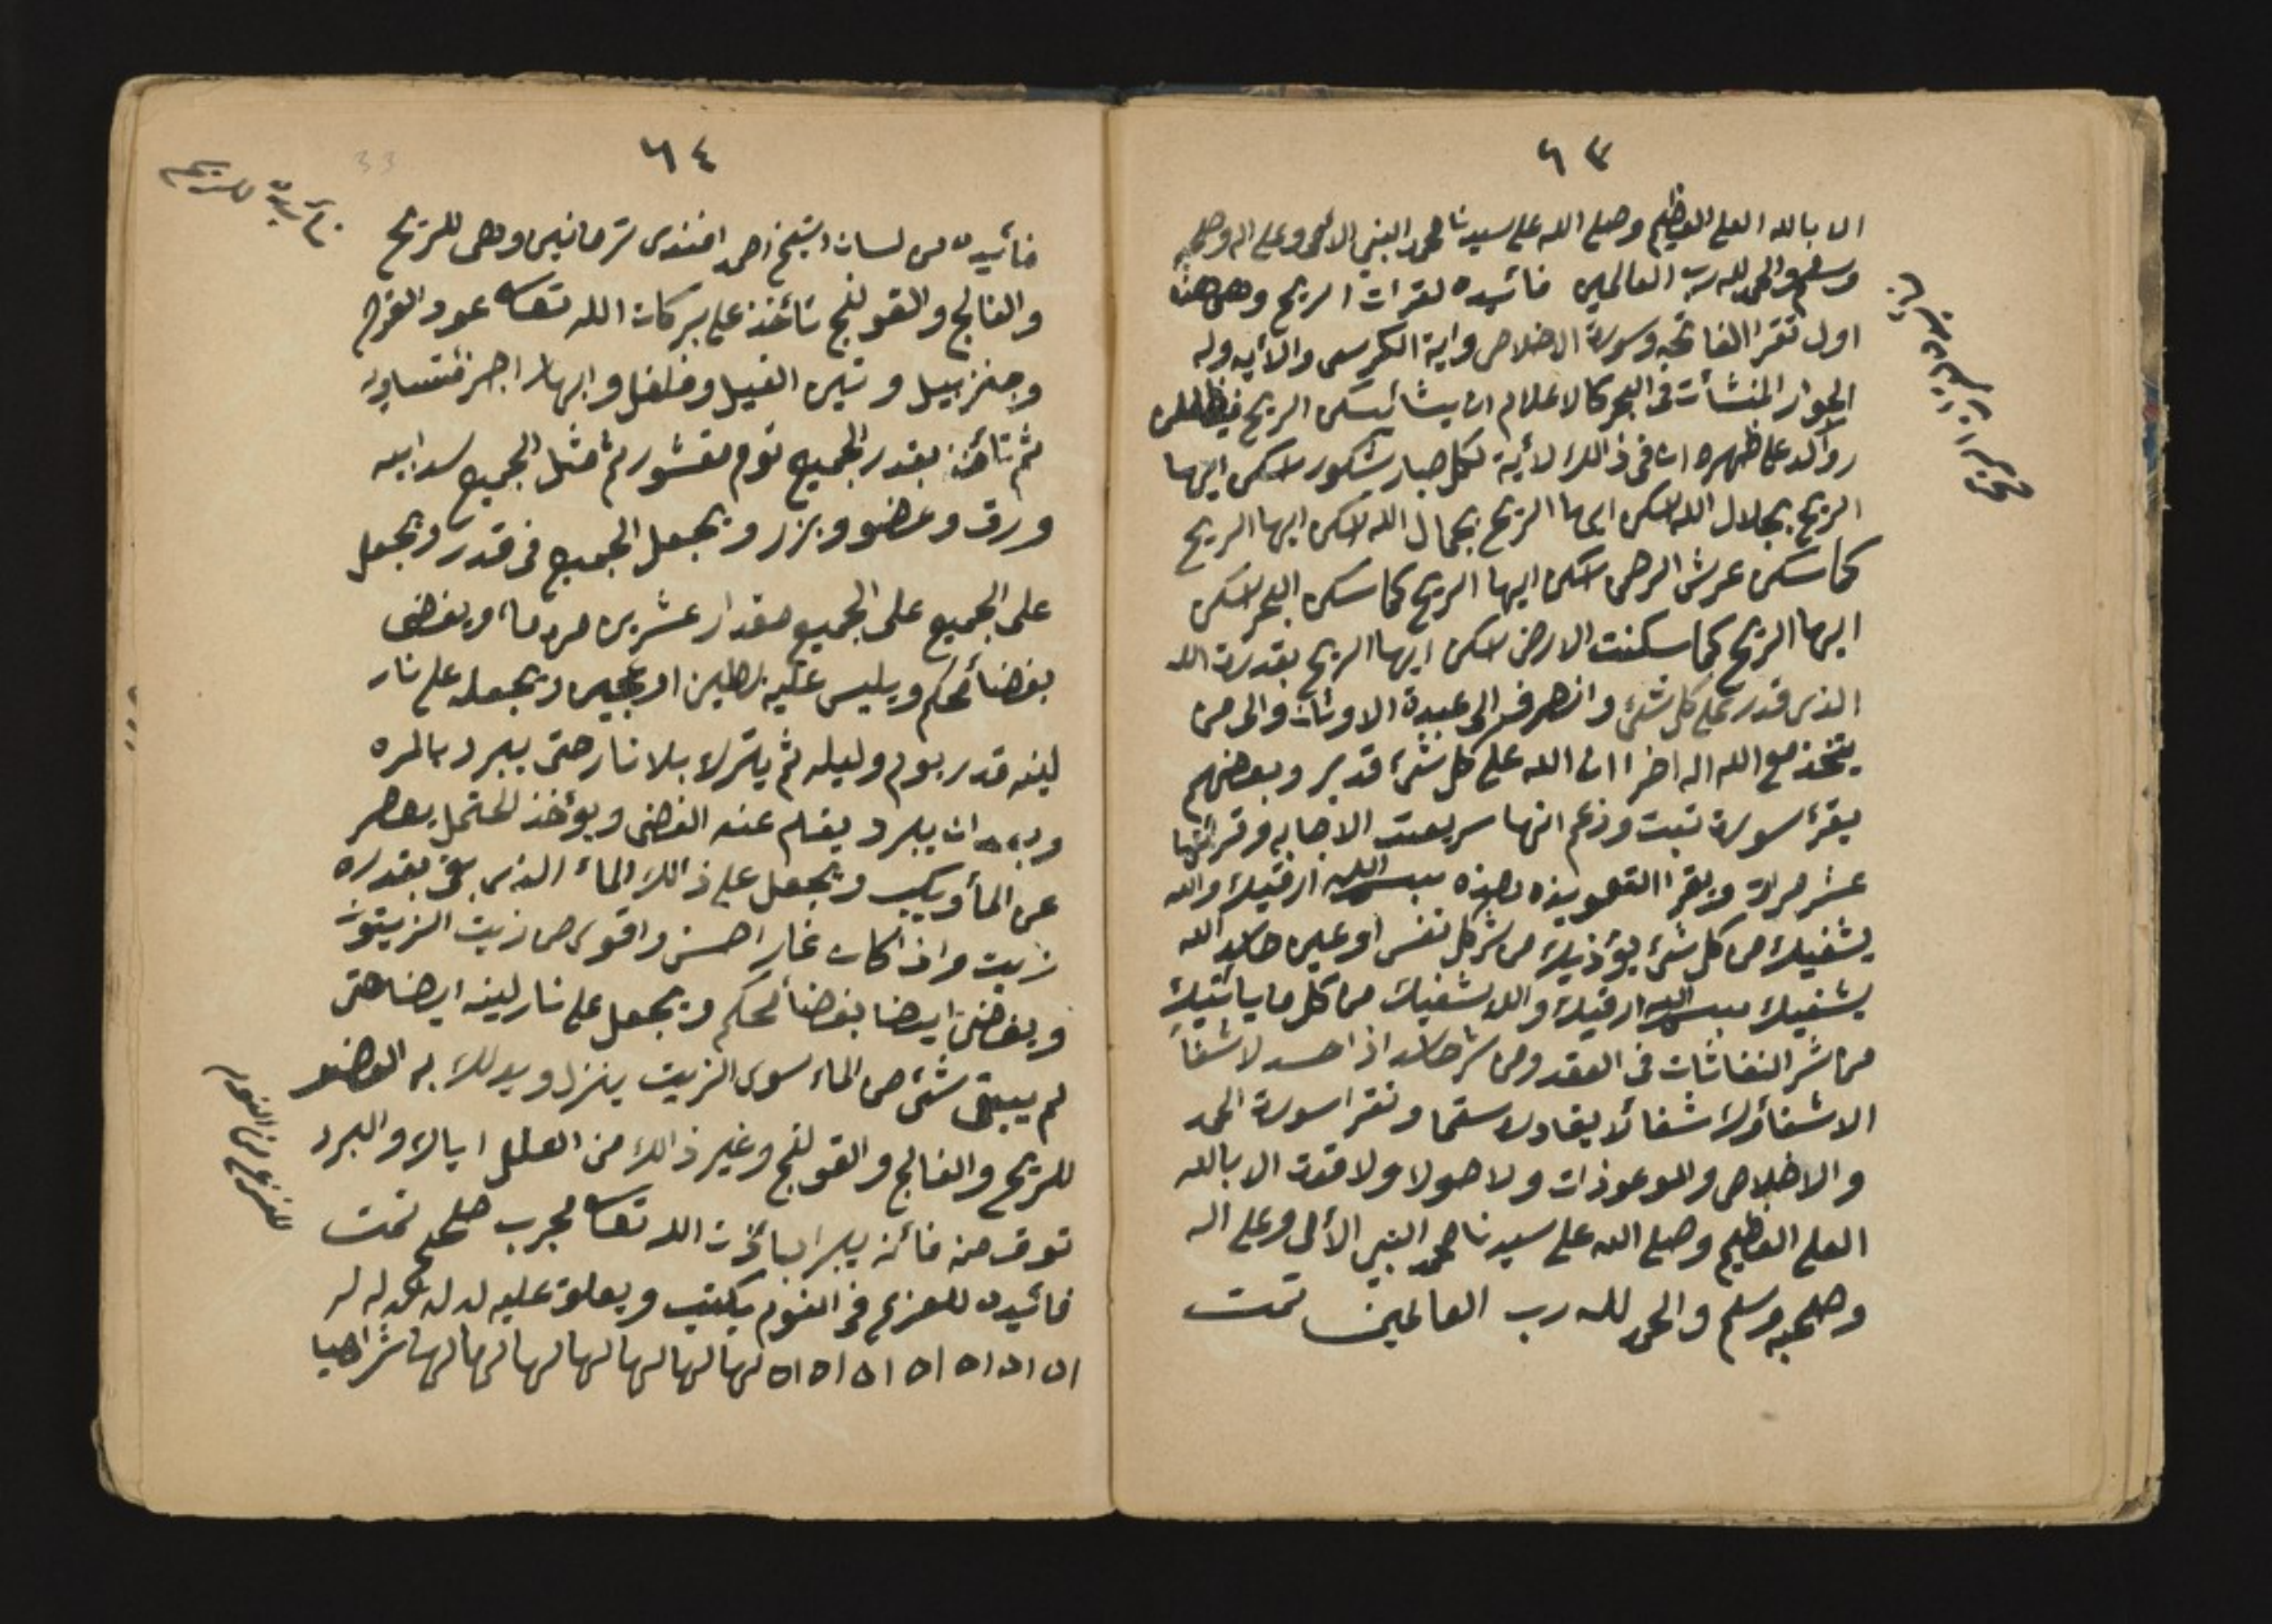 ٦٣
الا بالله العلى العظيم وصلى الله على سيدنا محمد النبي الامى وعلى اله وصحبه
وسلم والحمد لله رب العالمين فائيده لقرات الريح وهى هذه
اول تقرا الفاتحه وسورة الاخلاص واية الكرسى والأيه وله
الجوار المنشأت فى البحر كالاعلام ان يشا يسكن الريح فيظللن
رواكد على ظهره ان فى ذالك لأية لكل صبار شكور اسكن ايها
الريح بجلال الله اسكن ايها الريح بجمال الله اسكن ايها الريح
كما سكن عرش الرحمن اسكن ايها الريح كما سكن البحر اسكن
ايها الريح كما سكنت الارض اسكن ايها الريح بقدرة الله
الذى قدر على كل شئ وانصرف الى عبدة الاوثان والى من
يتخذ مع الله اله اخرا ان الله على كل شئ قدير وبعضهم
يقرء سورة تبت وزعم انها سريعت الاجابه وقرائتها
عشر مراة ويقرا التعويذه بهذه بسم الله ارقيك والله
يشفيك من كل شئ يؤذيك من شر كل نفس او عين حاسد الله
يشفيك بسم الله ارقيك والله يشفيك من كل ما يأتيك
من شر النفاثات فى العقد ومن شر حاسد اذا حسد لا شفأ
الا شفاؤك شفائا لا يغادر سقما وتقرا سورة الحمد
والاخلاص والموعوذات ولا حولا ولا قوت الا بالله
العلى العظيم وصلى الله على سيدنا محمد النبي الأمى وعلى اله
وصحبه وسلم والحمد لله رب العالمين تمت
٦٤
33
فائيده للريح
فائيده من لسان الشيخ احمد افندى ترمانينى وهى للريح
والفالج والقولنج تأخذ على بركات الله تعالى عود القرح
وجنزبيل و الفيل وفلفل وابهار اجزء متساويه
ثم تأخذ بقدر الجميع توم مقشور ثم مثل الجميع سدابيه
ورق وغضو وبزر وتجعل الجميع فى قدر وتجعل
على الجميع على الجميع مقدار عشرين مره ماء ويغضى
بغضأ محكم ويليس عليه بطين او عجين وتجعله على نار
لينه قدر يوم وليله ثم يترك بلا نار حتى يبرد بالمره
وبعد ان يبرد يقلم عنه الغضى ويؤخذ المتحمل يعصر
عن المأ ويكب وتجعل على ذالك الماء الذى بقى بقدره
زيت واذا كان غار احسن واقوى من زيت الزيتون
ويغضى ايضا بغضأ محكم وتجعل على نار لينه ايضا حتى
لم يبقى شئ من الماء سوى الزيت ينزل ويدلك به العضو
للريح والفالج والقولنج وغير ذالك من العلل اياك والبرد
توق منه فأنه يبرا بأذن الله تعالى مجرب صحيح تمت
فائيده للفزع فى النوم يكتب ويعلق عليه
اه اه اه اه اه اه اه لها لها لها لها لها لها لها شراهيا
للفزع فى النوم